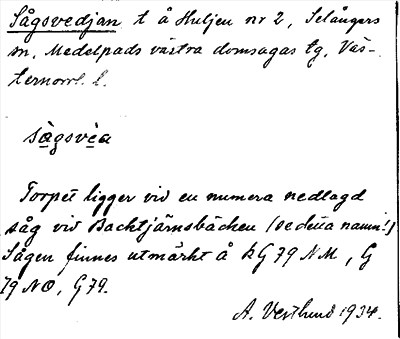 Sågsvedjan t å Huljen nr 2, Selångers
sn, Medelpads västra domsagas tg, Väs-
ternorrl. l.
sågsvèa
Torpet ligger vid en numera nedlagd
såg vid Backtjärnsbäcken (se detta namn!)
Sågen finnes utmärkt å kG 79 NM, G
79 NO, G 79.
A. Vestlund 1934.